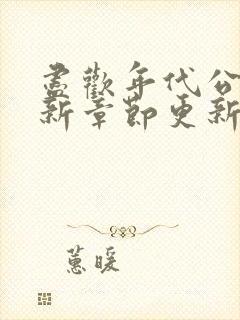 盡歡年代公
新章節更新
蕙暖